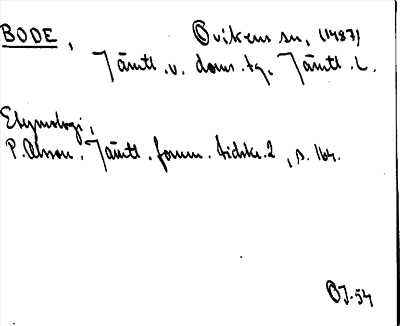 BODE, Ovikens sn, (1487)
Jämtl. v. doms. tg. Jämtl. L.
Etymologi,
P. Olsson. Jämtl. fornm. tidskr. 2, s. 164.
OJ-54